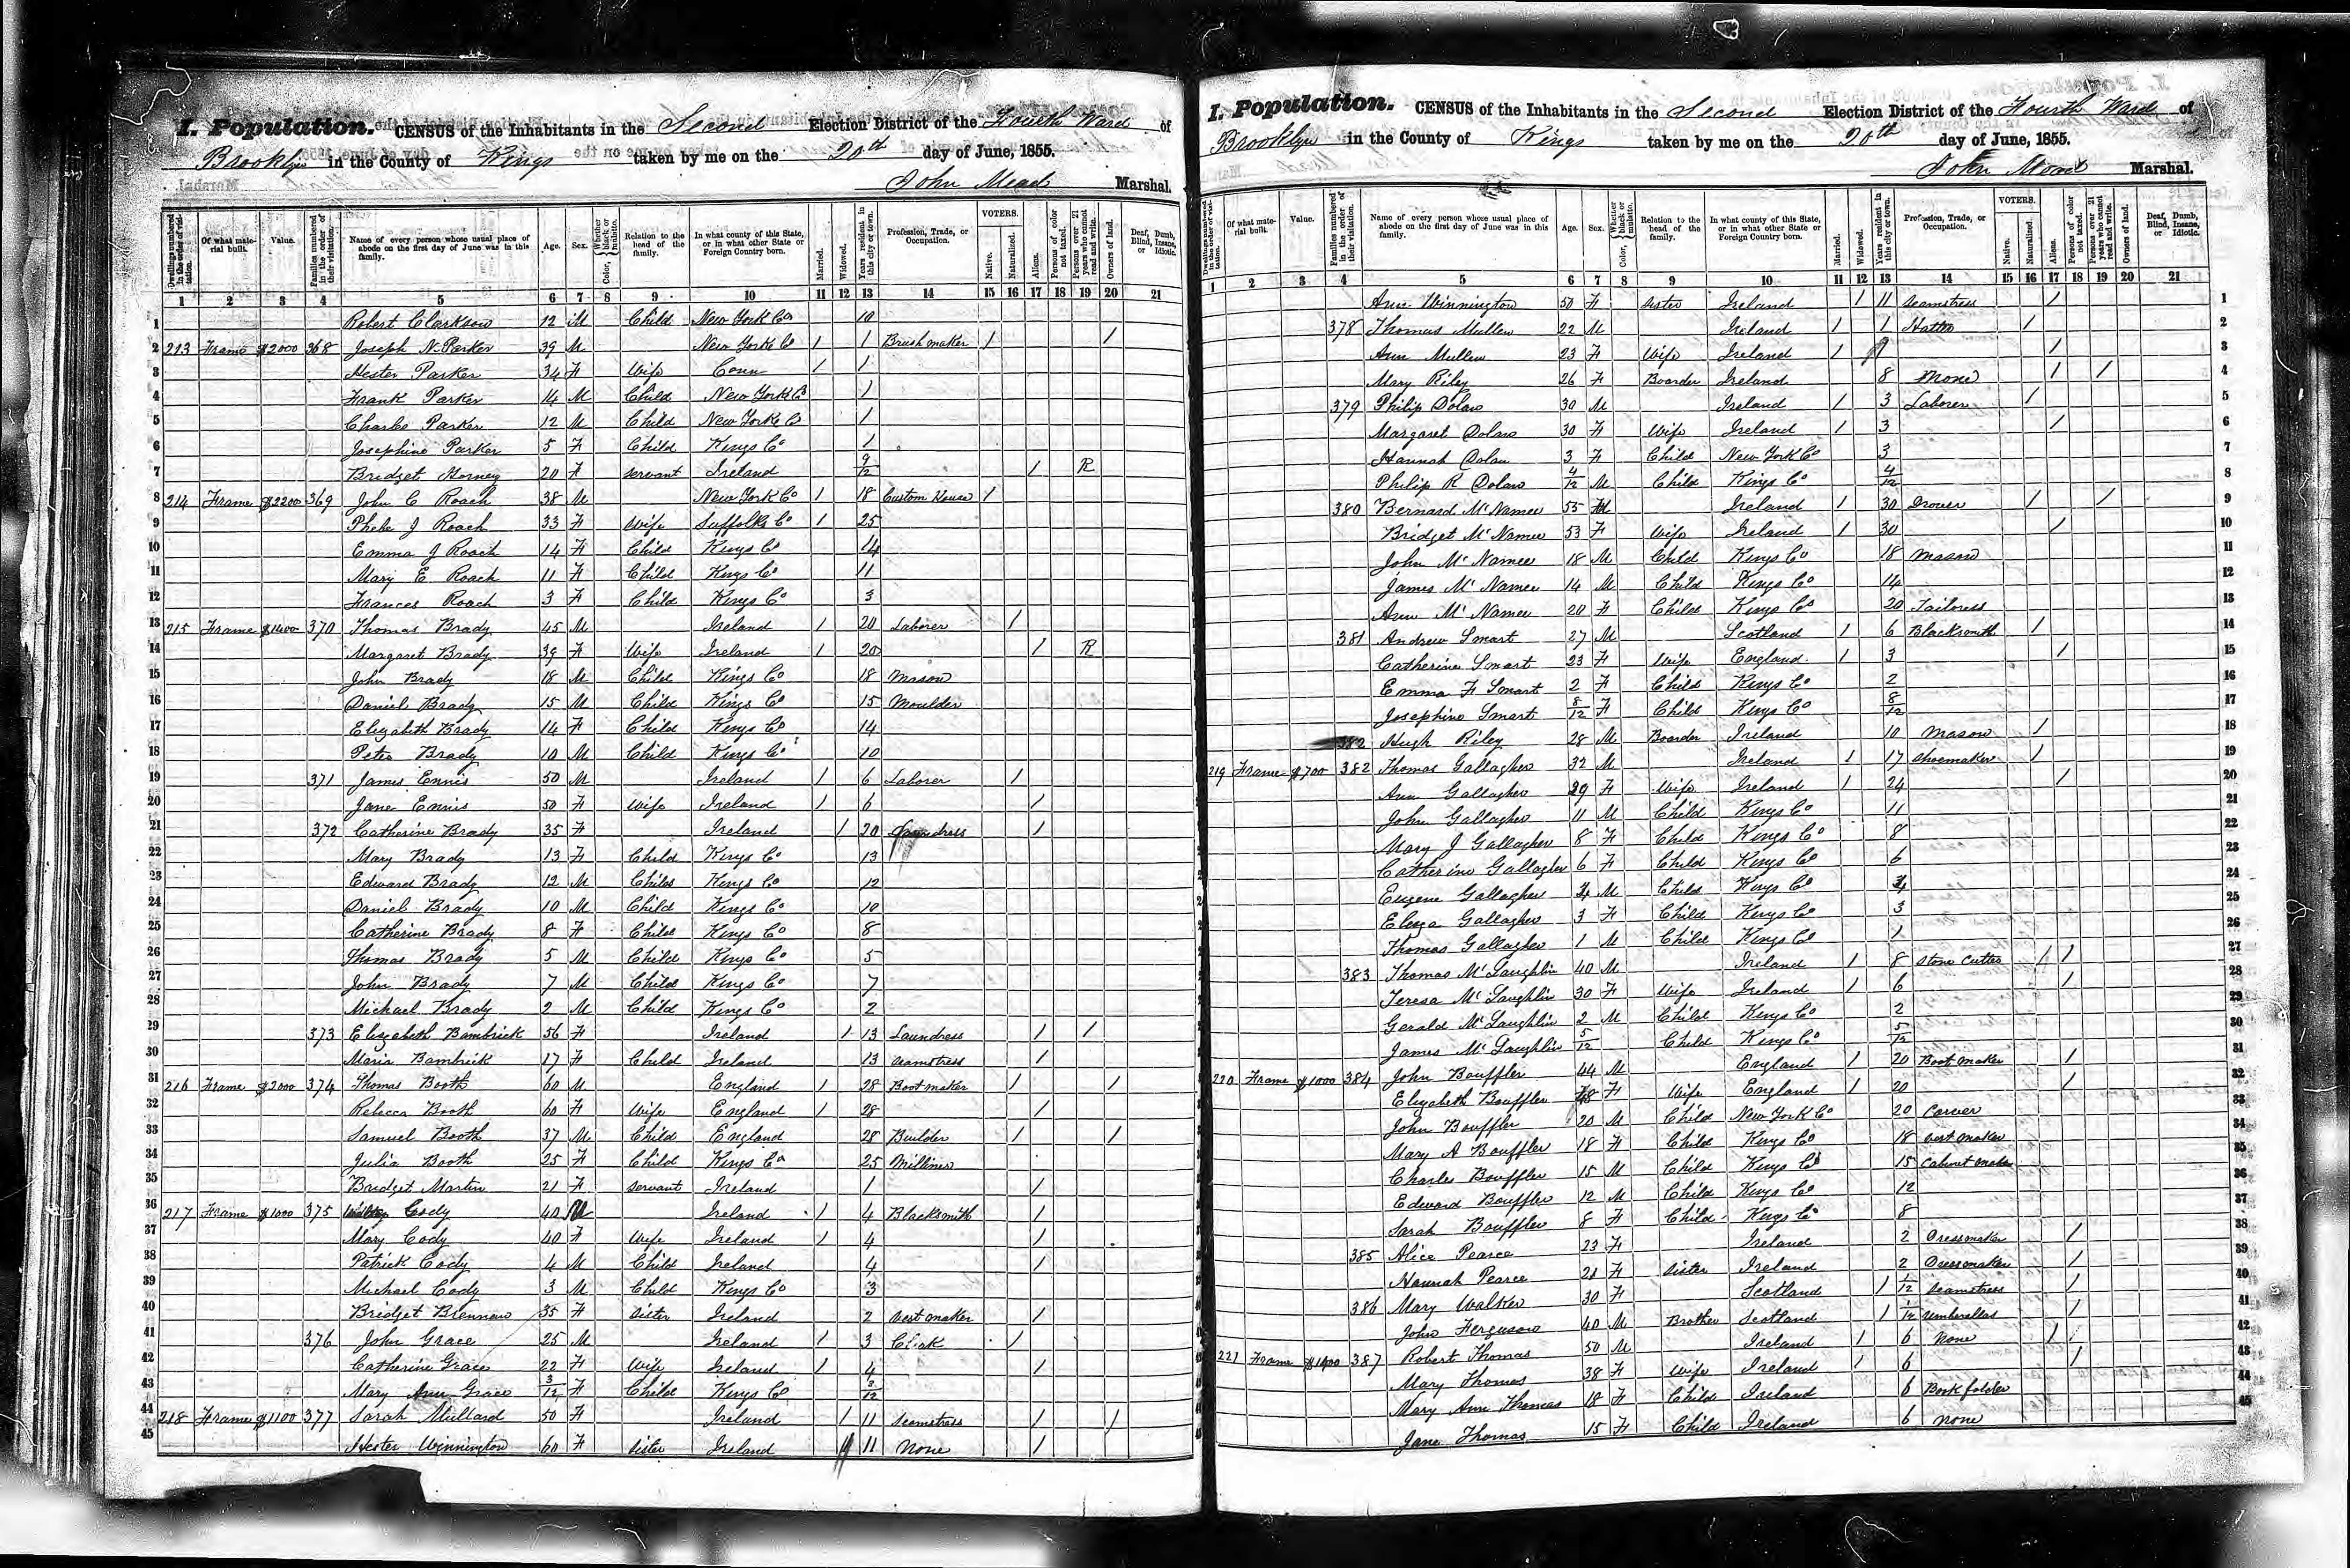 I. Population. CENSUS of the Inhabitants in the Second Election District of the Fourth Ward of
Brooklyn in the County of Kings taken by me on the 20th day of June, 1855.
John Mead Marshal.
Dwellings numbered in the order of visitation. Of what material built. Value. Families numbered in the order of their visitation. Name of every person whose usual place of abode on the first day of June was in this family. Age. Sex. Color, Whether black or mulatto. Relation to the head of the family. In what county of this State, or in what other State or Foreign Country born. Married. Widowed. Years resident in this city or town. Profession, Trade, or Occupation. VOTERS. Native. Naturalized. Aliens. Persons of color not taxed. Persons over 21 years who cannot read and write. Owners of land. Deaf, Dumb, Blind, Insane, or Idiotic.
1 2 3 4 5 6 7 8 9 10 11 12 13 14 15 16 17 18 19 20 21
1 Robert Clarkson 12 M Child New York Co 10
2 213 Frame $2000 368 Joseph N. Parker 39 M New York Co 1 1 Brush maker 1 1
3 Hester Parker 34 F Wife Conn 1 1
4 Frank Parker 14 M Child New York Co 1
5 Charles Parker 12 M Child New York Co 1
6 Josephine Parker 5 F Child Kings Co 1
7 Bridget Horney 20 F servant Ireland 9/12 1 R
8 214 Frame $2200 369 John C Roach 38 M New York Co 1 18 Custom House 1
9 Phebe J Roach 33 F Wife Suffolk Co 1 25
10 Emma J Roach 14 F Child Kings Co 14
11 Mary E Roach 11 F Child Kings Co 11
12 Frances Roach 3 F Child Kings Co 3
13 215 Frame $1400 370 Thomas Brady 45 M Ireland 1 20 Laborer 1
14 Margaret Brady 39 F Wife Ireland 1 20 1 R
15 John Brady 18 M Child Kings Co 18 Mason
16 Daniel Brady 15 M Child Kings Co 15 Moulder
17 Elizabeth Brady 14 F Child Kings Co 14
18 Peter Brady 10 M Child Kings Co 10
19 371 James Ennis 50 M Ireland 1 6 Laborer 1
20 Jane Ennis 50 F Wife Ireland 1 6 1
21 372 Catherine Brady 35 F Ireland 1 20 Laundress 1
22 Mary Brady 13 F Child Kings Co 13
23 Edward Brady 12 M Child Kings Co 12
24 Daniel Brady 10 M Child Kings Co 10
25 Catherine Brady 8 F Child Kings Co 8
26 Thomas Brady 5 M Child Kings Co 5
27 John Brady 7 M Child Kings Co 7
28 Michael Brady 2 M Child Kings Co 2
29 373 Elizabeth Bambrick 56 F Ireland 1 13 Laundress 1 1
30 Maria Bambrick 17 F Child Ireland 13 seamstress 1
31 216 Frame $2000 374 Thomas Booth 60 M England 1 28 Boot maker 1 1
32 Rebecca Booth 60 F Wife England 1 28 1
33 Samuel Booth 37 M Child England 28 Builder 1 1
34 Julia Booth 25 F Child Kings Co 25 Milliner
35 Bridget Martin 21 F servant Ireland 1 1
36 217 Frame $1000 375 Cody 40 M Ireland 1 4 Blacksmith 1
37 Mary Cody 40 F Wife Ireland 1 4 1
38 Patrick Cody 4 M Child Ireland 4 1
39 Michael Cody 3 M Child Kings Co 3
40 Bridget Brennan 35 F sister Ireland 2 vest maker 1
41 376 John Grace 25 M Ireland 1 3 Clerk 1
42 Catherine Grace 22 F Wife Ireland 1 4 1
43 Mary Ann Grace 3/12 F Child Kings Co 3/12
44 218 Frame $1100 377 Sarah Mullard 50 F Ireland 1 11 seamstress 1 1
45 Hester Winnington 60 F sister Ireland 1 11 None 1
I. Population. CENSUS of the Inhabitants in the Second Election District of the Fourth Ward of
Brooklyn in the County of Kings taken by me on the 20th day of June, 1855.
John Mead Marshal.
Dwellings numbered in the order of visitation. Of what material built. Value. Families numbered in the order of their visitation. Name of every person whose usual place of abode on the first day of June was in this family. Age. Sex. Color, Whether black or mulatto. Relation to the head of the family. In what county of this State, or in what other State or Foreign Country born. Married. Widowed. Years resident in this city or town. Profession, Trade, or Occupation. VOTERS. Native. Naturalized. Aliens. Persons of color not taxed. Persons over 21 years who cannot read and write. Owners of land. Deaf, Dumb, Blind, Insane, or Idiotic.
1 2 3 4 5 6 7 8 9 10 11 12 13 14 15 16 17 18 19 20 21
Ann Winnington 50 F sister Ireland 1 11 seamstress 1 1
378 Thomas Mullen 22 M Ireland 1 1 Hatter 1 2
Ann Mullen 23 F Wife Ireland 1 1 3
Mary Riley 26 F Boarder Ireland 8 None 1 1 4
379 Philip Dolan 30 M Ireland 1 3 Laborer 1 5
Margaret Dolan 30 F Wife Ireland 1 3 1 6
Hannah Dolan 3 F Child New York Co 3 7
Philip R Dolan 4/12 M Child Kings Co 4/12 8
380 Bernard McNamee 55 M Ireland 1 30 Drover 1 1 9
Bridget McNamee 53 F Wife Ireland 1 30 1 10
John McNamee 18 M Child Kings Co 18 Mason 11
James McNamee 14 M Child Kings Co 14 12
Ann McNamee 20 F Child Kings Co 20 Tailoress 13
381 Andrew Smart 27 M Scotland 1 6 Blacksmith 1 14
Catherine Smart 23 F Wife England 1 3 1 15
Emma F Smart 2 F Child Kings Co 2 16
Josephine Smart 8/12 F Child Kings Co 8/12 17
382 Hugh Riley 28 M Boarder Ireland 10 Mason 1 18
219 Frame $700 382 Thomas Gallagher 32 M Ireland 1 17 shoemaker 1 19
Ann Gallagher 29 F Wife Ireland 1 24 1 20
John Gallagher 11 M Child Kings Co 11 21
Mary J Gallagher 8 F Child Kings Co 8 22
Catherine Gallagher 6 F Child Kings Co 6 23
Eugene Gallagher 4 M Child Kings Co 4 24
Eliza Gallagher 3 F Child Kings Co 3 25
Thomas Gallagher 1 M Child Kings Co 1 26
383 Thomas McLaughlin 40 M Ireland 1 8 stone cutter 1 1 27
Teresa McLaughlin 30 F Wife Ireland 1 6 1 28
Gerald McLaughlin 2 M Child Kings Co 2 29
James McLaughlin 5/12 Child Kings Co 5/12 30
220 Frame $1000 384 John Bouffler 44 M England 1 20 Boot maker 1 31
Elizabeth Bouffler 48 F Wife England 1 20 1 32
John Bouffler 20 M Child New York Co 20 Carver 33
Mary A Bouffler 18 F Child Kings Co 18 vest maker 34
Charles Bouffler 15 M Child Kings Co 15 Cabinet maker 35
Edward Bouffler 12 M Child Kings Co 12 36
Sarah Bouffler 8 F Child Kings Co 8 37
385 Alice Pearce 23 F Ireland 2 Dressmaker 1 38
Hannah Pearce 21 F sister Ireland 2 Dressmaker 1 39
386 Mary Walker 30 F Scotland 1 1/12 seamstress 1 40
John Ferguson 40 M Brother Scotland 1 1/12 Umbrellas 1 41
221 Frame $1400 387 Robert Thomas 50 M Ireland 1 6 None 1 42
Mary Thomas 38 F Wife Ireland 1 6 1 43
Mary Ann Thomas 18 F Child Ireland 6 Book folder 44
Jane Thomas 15 F Child Ireland 6 None 45